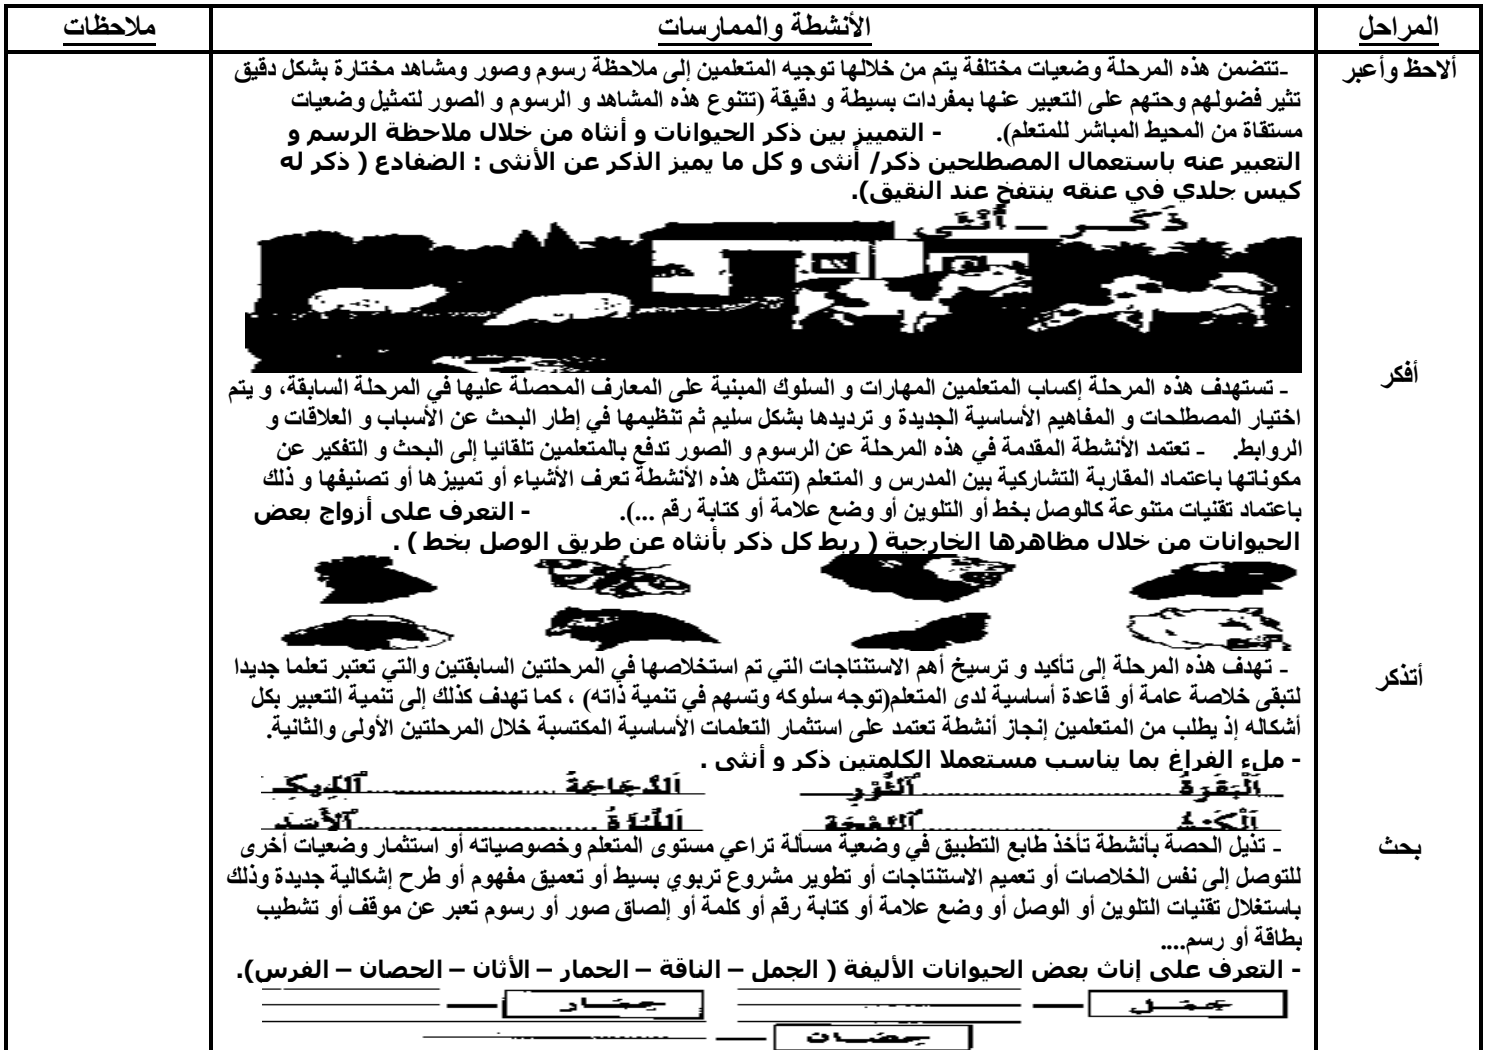 المراحل
الأنشطة والممارسات
ملاحظات
ألاحظ وأعبر
-تتضمن هذه المرحلة وضعيات مختلفة يتم من خلالها توجيه المتعلمين إلى ملاحظة رسوم وصور ومشاهد مختارة بشكل دقيق
تثير فضولهم وحتهم على التعبير عنها بمفردات بسيطة و دقيقة (تتنوع هذه المشاهد و الرسوم و الصور لتمثيل وضعيات
مستقاة من المحيط المباشر للمتعلم). - التمييز بين ذكر الحيوانات و أنثاه من خلال ملاحظة الرسم و
التعبير عنه باستعمال المصطلحين ذكر/ أنثى و كل ما يميز الذكر عن الأنثى : الضفادع ( ذكر له
كيس جلدي في عنقه ينتفخ عند النقيق).
ذَكَـــر – أُنْثَى
أفكر
- تستهدف هذه المرحلة إكساب المتعلمين المهارات و السلوك المبنية على المعارف المحصلة عليها في المرحلة السابقة، و يتم
اختيار المصطلحات و المفاهيم الأساسية الجديدة و ترديدها بشكل سليم ثم تنظيمها في إطار البحث عن الأسباب و العلاقات و
الروابط. - تعتمد الأنشطة المقدمة في هذه المرحلة عن الرسوم و الصور تدفع بالمتعلمين تلقائيا إلى البحث و التفكير عن
مكوناتها باعتماد المقاربة التشاركية بين المدرس و المتعلم (تتمثل هذه الأنشطة تعرف الأشياء أو تمييزها أو تصنيفها و ذلك
باعتماد تقنيات متنوعة كالوصل بخط أو التلوين أو وضع علامة أو كتابة رقم ...). - التعرف على أزواج بعض
الحيوانات من خلال مظاهرها الخارجية ( ربط كل ذكر بأنثاه عن طريق الوصل بخط ) .
أتذكر
- تهدف هذه المرحلة إلى تأكيد و ترسيخ أهم الاستنتاجات التي تم استخلاصها في المرحلتين السابقتين والتي تعتبر تعلما جديدا
لتبقى خلاصة عامة أو قاعدة أساسية لدى المتعلم(توجه سلوكه وتسهم في تنمية ذاته) ، كما تهدف كذلك إلى تنمية التعبير بكل
أشكاله إذ يطلب من المتعلمين إنجاز أنشطة تعتمد على استثمار التعلمات الأساسية المكتسبة خلال المرحلتين الأولى والثانية.
- ملء الفراغ بما يناسب مستعملا الكلمتين ذكر و أنثى .
اَلْبَقَرَةُ ........................ اَلثَّوْرِ اَلدَّجَاجَةُ ........................ اَلدِّيكِ
اَلْكَبْشُ ........................ اَلنَّعْجَةِ اَللَّبُؤَةُ ........................ اَلْأَسَدِ
بحث
- تذيل الحصة بأنشطة تأخذ طابع التطبيق في وضعية مسألة تراعي مستوى المتعلم وخصوصياته أو استثمار وضعيات أخرى
للتوصل إلى نفس الخلاصات أو تعميم الاستنتاجات أو تطوير مشروع تربوي بسيط أو تعميق مفهوم أو طرح إشكالية جديدة وذلك
باستغلال تقنيات التلوين أو الوصل أو وضع علامة أو كتابة رقم أو كلمة أو إلصاق صور أو رسوم تعبر عن موقف أو تشطيب
بطاقة أو رسم....
- التعرف على إناث بعض الحيوانات الأليفة ( الجمل – الناقة – الحمار – الأثان – الحصان – الفرس).
جمـــل حمـــار
حصـــان